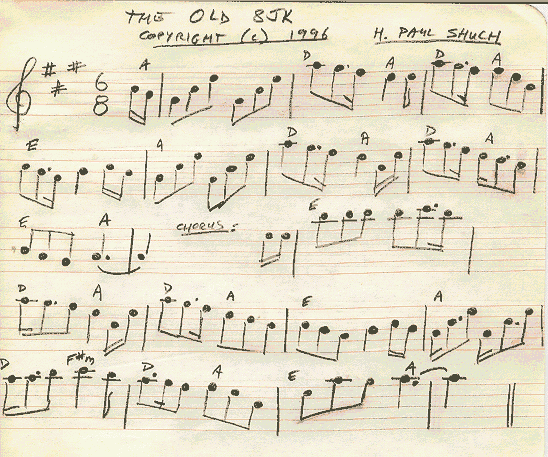 THE OLD 8JK
COPYRIGHT (c) 1996 H. PAUL SHUCH
A D A D A
6
8
E A D A D A
E A CHORUS: E
D A D A E A
D F#m D A E A